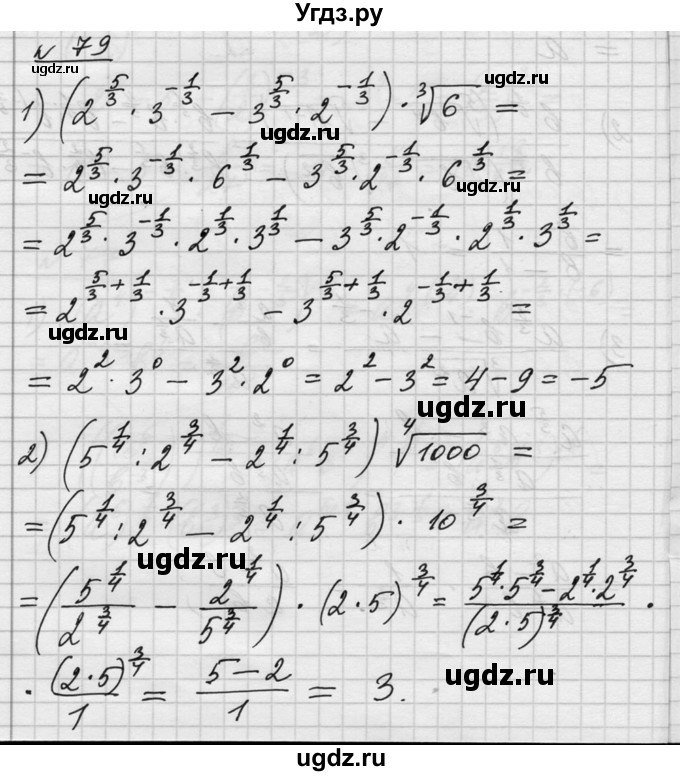 Угдз.ру
№ 79
ugdz.ru
1) (2^(5/3) · 3^(-1/3) − 3^(5/3) · 2^(-1/3)) · ∛6 =
ugdz.ru
ugdz.ru
= 2^(5/3) · 3^(-1/3) · 6^(1/3) − 3^(5/3) · 2^(-1/3) · 6^(1/3) =
ugdz.ru
ugdz.ru
= 2^(5/3) · 3^(-1/3) · 2^(1/3) · 3^(1/3) − 3^(5/3) · 2^(-1/3) · 2^(1/3) · 3^(1/3) =
= 2^(5/3+1/3) · 3^(-1/3+1/3) − 3^(5/3+1/3) · 2^(-1/3+1/3) =
ugdz.ru
= 2² · 3⁰ − 3² · 2⁰ = 2² − 3² = 4 − 9 = −5
ugdz.ru
2) (5^(1/4) : 2^(3/4) − 2^(1/4) : 5^(3/4)) ∜1000 =
= (5^(1/4) : 2^(3/4) − 2^(1/4) : 5^(3/4)) · 10^(3/4) =
ugdz.ru
= (5^(1/4)/2^(3/4) − 2^(1/4)/5^(3/4)) · (2·5)^(3/4) = (5^(1/4) · 5^(3/4) − 2^(1/4) · 2^(3/4))/(2·5)^(3/4) ·
· (2·5)^(3/4)/1 = (5−2)/1 = 3.
ugdz.ru
ugdz.ru
ugdz.ru